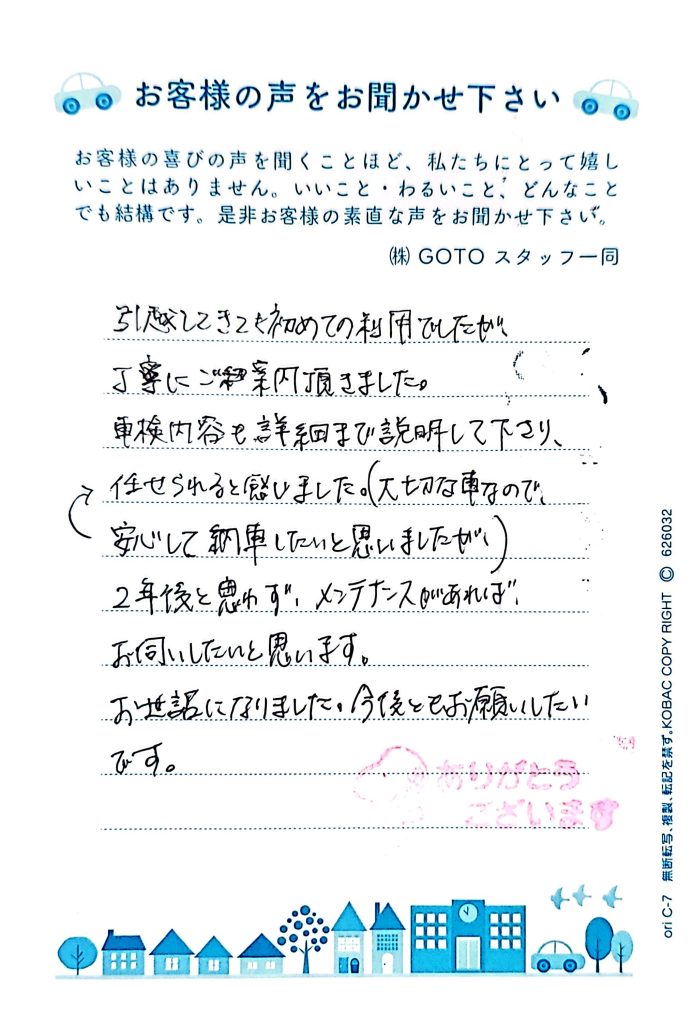 お客様の声をお聞かせ下さい
お客様の喜びの声を聞くことほど、私たちにとって嬉し
いことはありません。いいこと・わるいこと、どんなこと
でも結構です。是非お客様の素直な声をお聞かせ下さい。
㈱ GOTO スタッフ一同
引越してきても初めての利用でしたが、
丁寧にご案内頂きました。
車検内容も詳細まで説明して下さり、
任せられると感じました。(大切な車なので、
安心して納車したいと思いましたが、)
2年後と思わず、メンテナンスがあれば、
お伺いしたいと思います。
お世話になりました。今後ともお願いしたい
です。
ありがとう
ございます
ori C-7 無断転写、複製、転記を禁ず。KOBAC COPY RIGHT © 626032